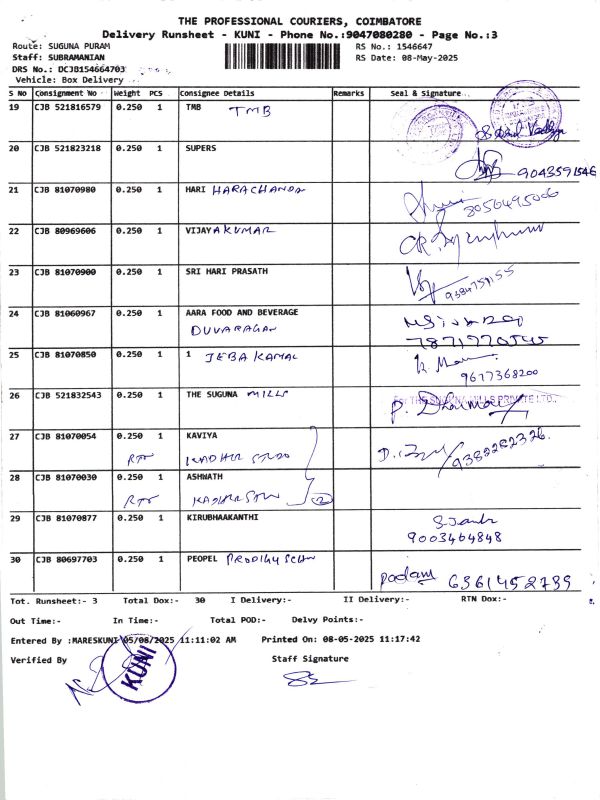 THE PROFESSIONAL COURIERS, COIMBATORE
Delivery Runsheet - KUNI - Phone No.:9047080280 - Page No.:3
Route: SUGUNA PURAM RS No.: 1546647
Staff: SUBRAMANIAN RS Date: 08-May-2025
DRS No.: DCJB154664703
Vehicle: Box Delivery
S No Consignment No Weight PCS Consignee Details Remarks Seal & Signature
19 CJB 521816579 0.250 1 TMB TMB
20 CJB 521823218 0.250 1 SUPERS 9043591546
21 CJB 81070980 0.250 1 HARI HARACHANDA 8056495006
22 CJB 80969606 0.250 1 VIJAY AKUMAR
23 CJB 81070900 0.250 1 SRI HARI PRASATH
24 CJB 81060967 0.250 1 AARA FOOD AND BEVERAGE
DUVARAGAN
25 CJB 81070850 0.250 1 1 JEBA KAMAL
9677368200
26 CJB 521832543 0.250 1 THE SUGUNA MILLS For THE SUGUNA MILLS PRIVATE LTD.,
27 CJB 81070054 0.250 1 KAVIYA
9382282326
28 CJB 81070030 0.250 1 ASHWATH
29 CJB 81070877 0.250 1 KIRUBHAAKANTHI
9003464848
30 CJB 80697703 0.250 1 PEOPEL
6361452739
Tot. Runsheet:- 3 Total Dox:- 30 I Delivery:- II Delivery:- RTN Dox:-
Out Time:- In Time:- Total POD:- Delvy Points:-
Entered By :MARESKUNI 05/08/2025 11:11:02 AM Printed On: 08-05-2025 11:17:42
Verified By Staff Signature
KUNI